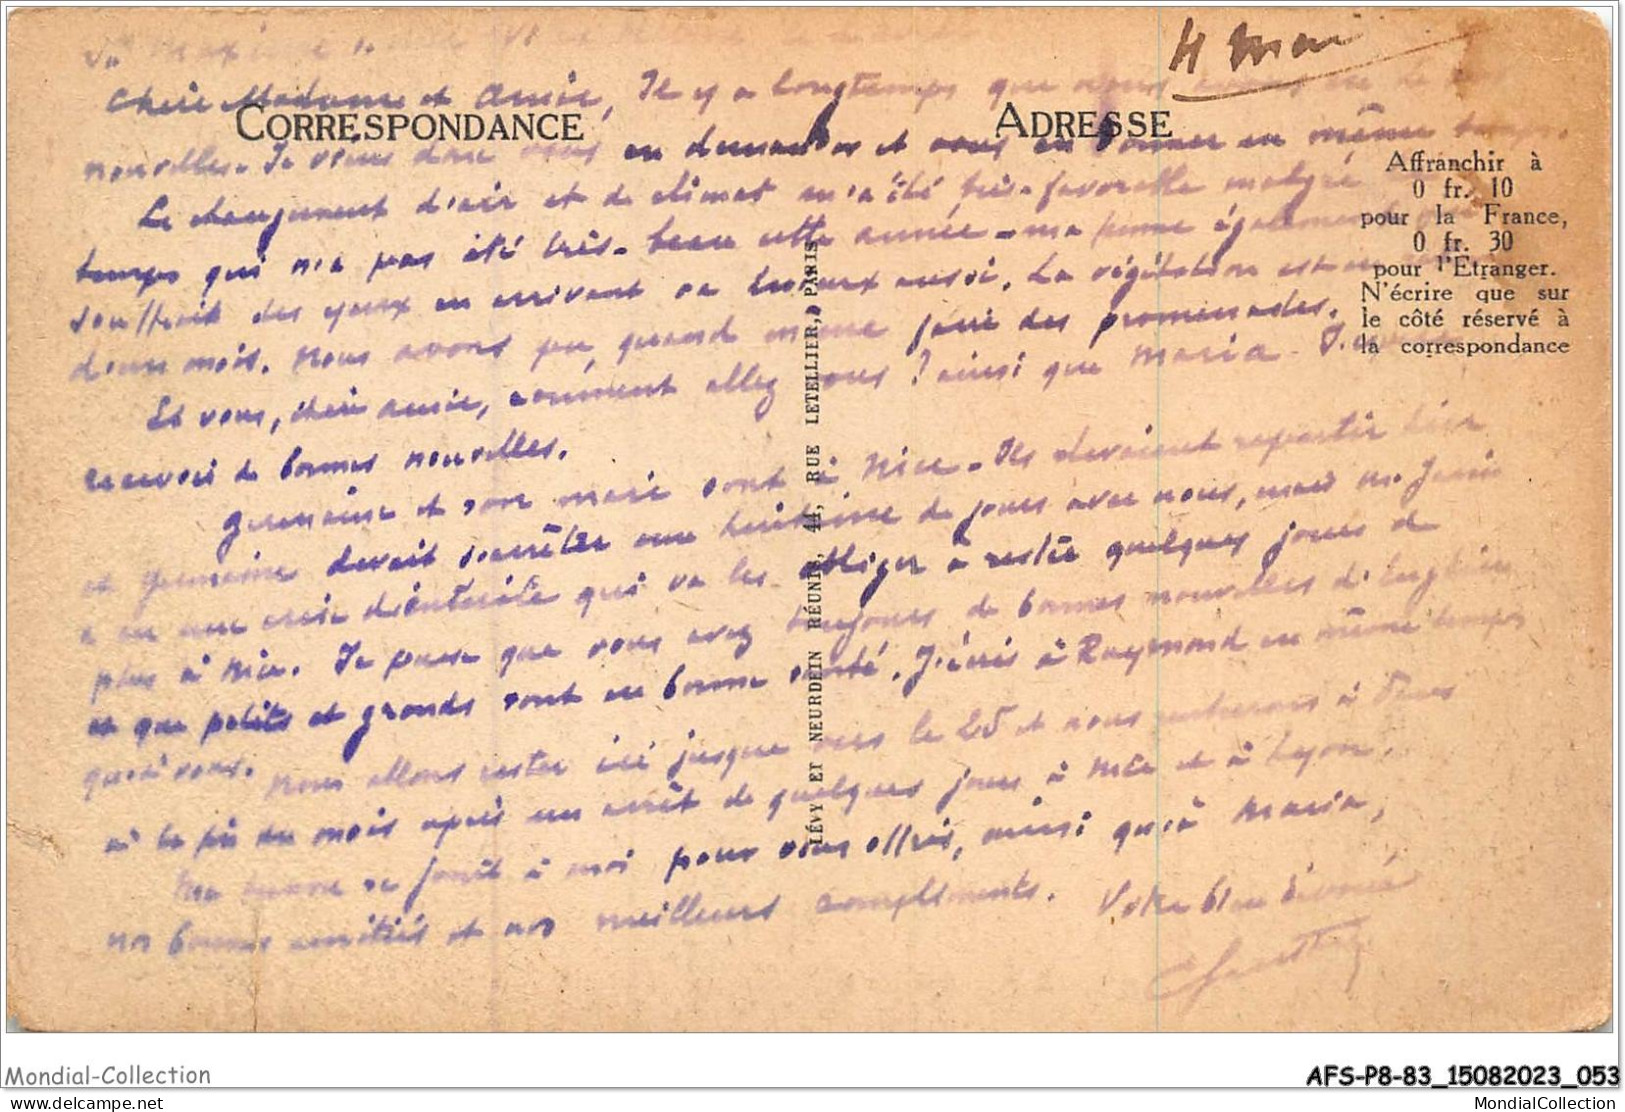 4 Mai
Chère Madame et Amie, Il y a longtemps que nous
CORRESPONDANCE
ADRESSE
nouvelles. Je viens donc vous en demander et vous en donner en même temps.
Le changement d'air et de climat m'a été très favorable malgré
temps qui n'a pas été très beau cette année - ma femme également
souffrait des yeux en arrivant va mieux aussi. La végétation est en
d'un mois. Nous avons pu, quand même faire des promenades.
Et vous, chère amie, comment allez vous ? ainsi que Maria.
recevoir de bonnes nouvelles.
Germaine et son mari sont à Nice. Ils devaient repartir hier
et Germaine devait s'arrêter une huitaine de jours avec nous, mais
a eu une crise d'entérite qui va les obliger à rester quelques jours de
plus à Nice. Je pense que vous avez toujours de bonnes nouvelles d'Enghien
et que petits et grands sont en bonne santé. J'écris à Raymond en même temps
qu'à vous.
Nous allons rester ici jusque vers le 25 et nous rentrerons à
à la fin du mois après un arrêt de quelques jours à Nice et à Lyon.
Ma femme se joint à moi pour vous offrir, ainsi qu'à Maria,
nos bonnes amitiés et nos meilleurs compliments. Votre bien
Affranchir à
0 fr. 10
pour la France,
0 fr. 30
pour l'Etranger.
N'écrire que sur
le côté réservé à
la correspondance
LÉVY ET NEURDEIN RÉUNIS, 44, RUE LETELLIER, PARIS
Mondial-Collection
AFS-P8-83_15082023_053
delcampe.net
MondialCollection